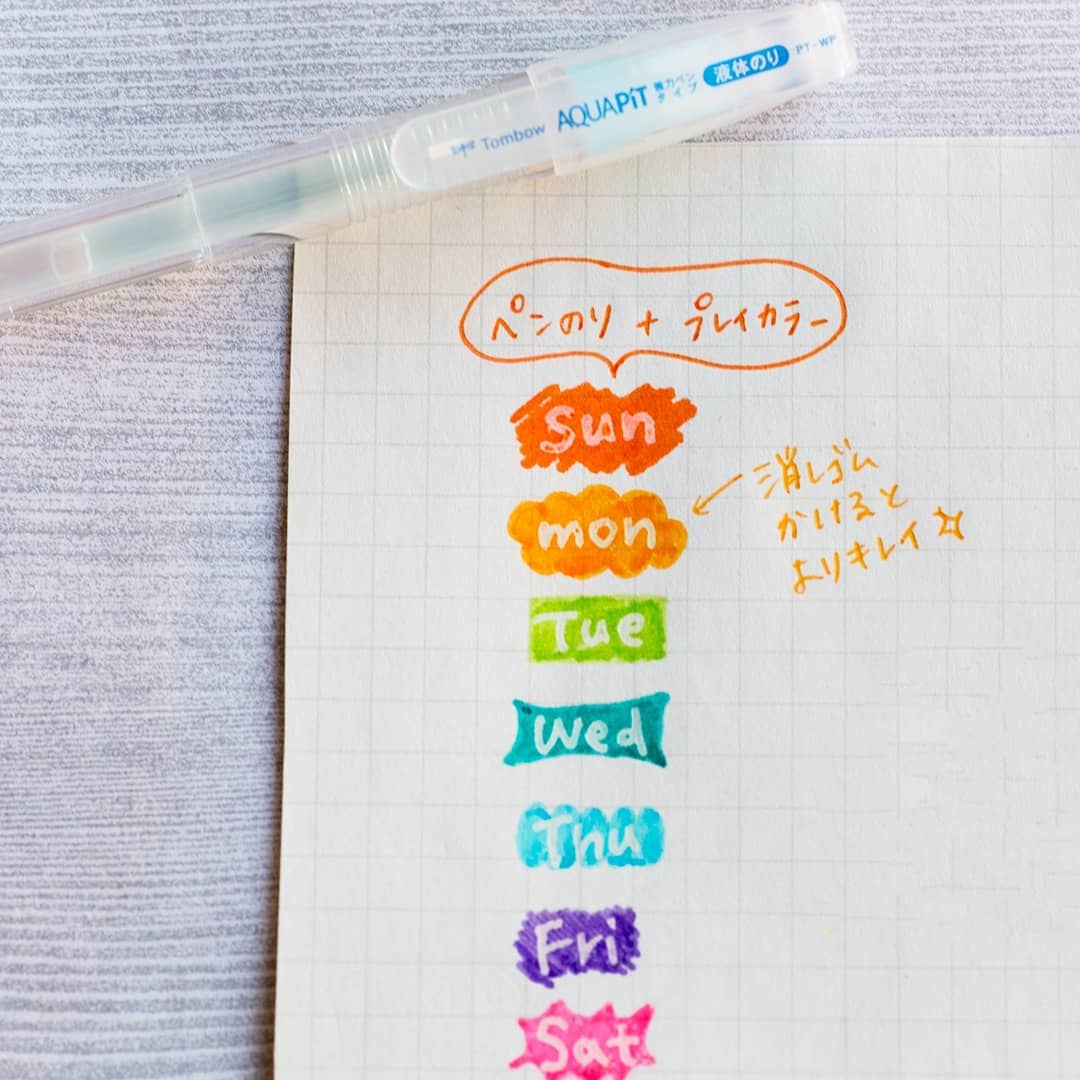 Tombow AQUAPiT 強力ペンタイプ 液体のり PT-WP
ペンのり + プレイカラー
Sun
mon
消しゴム
かけると
よりキレイ
Tue
Wed
Thu
Fri
Sat